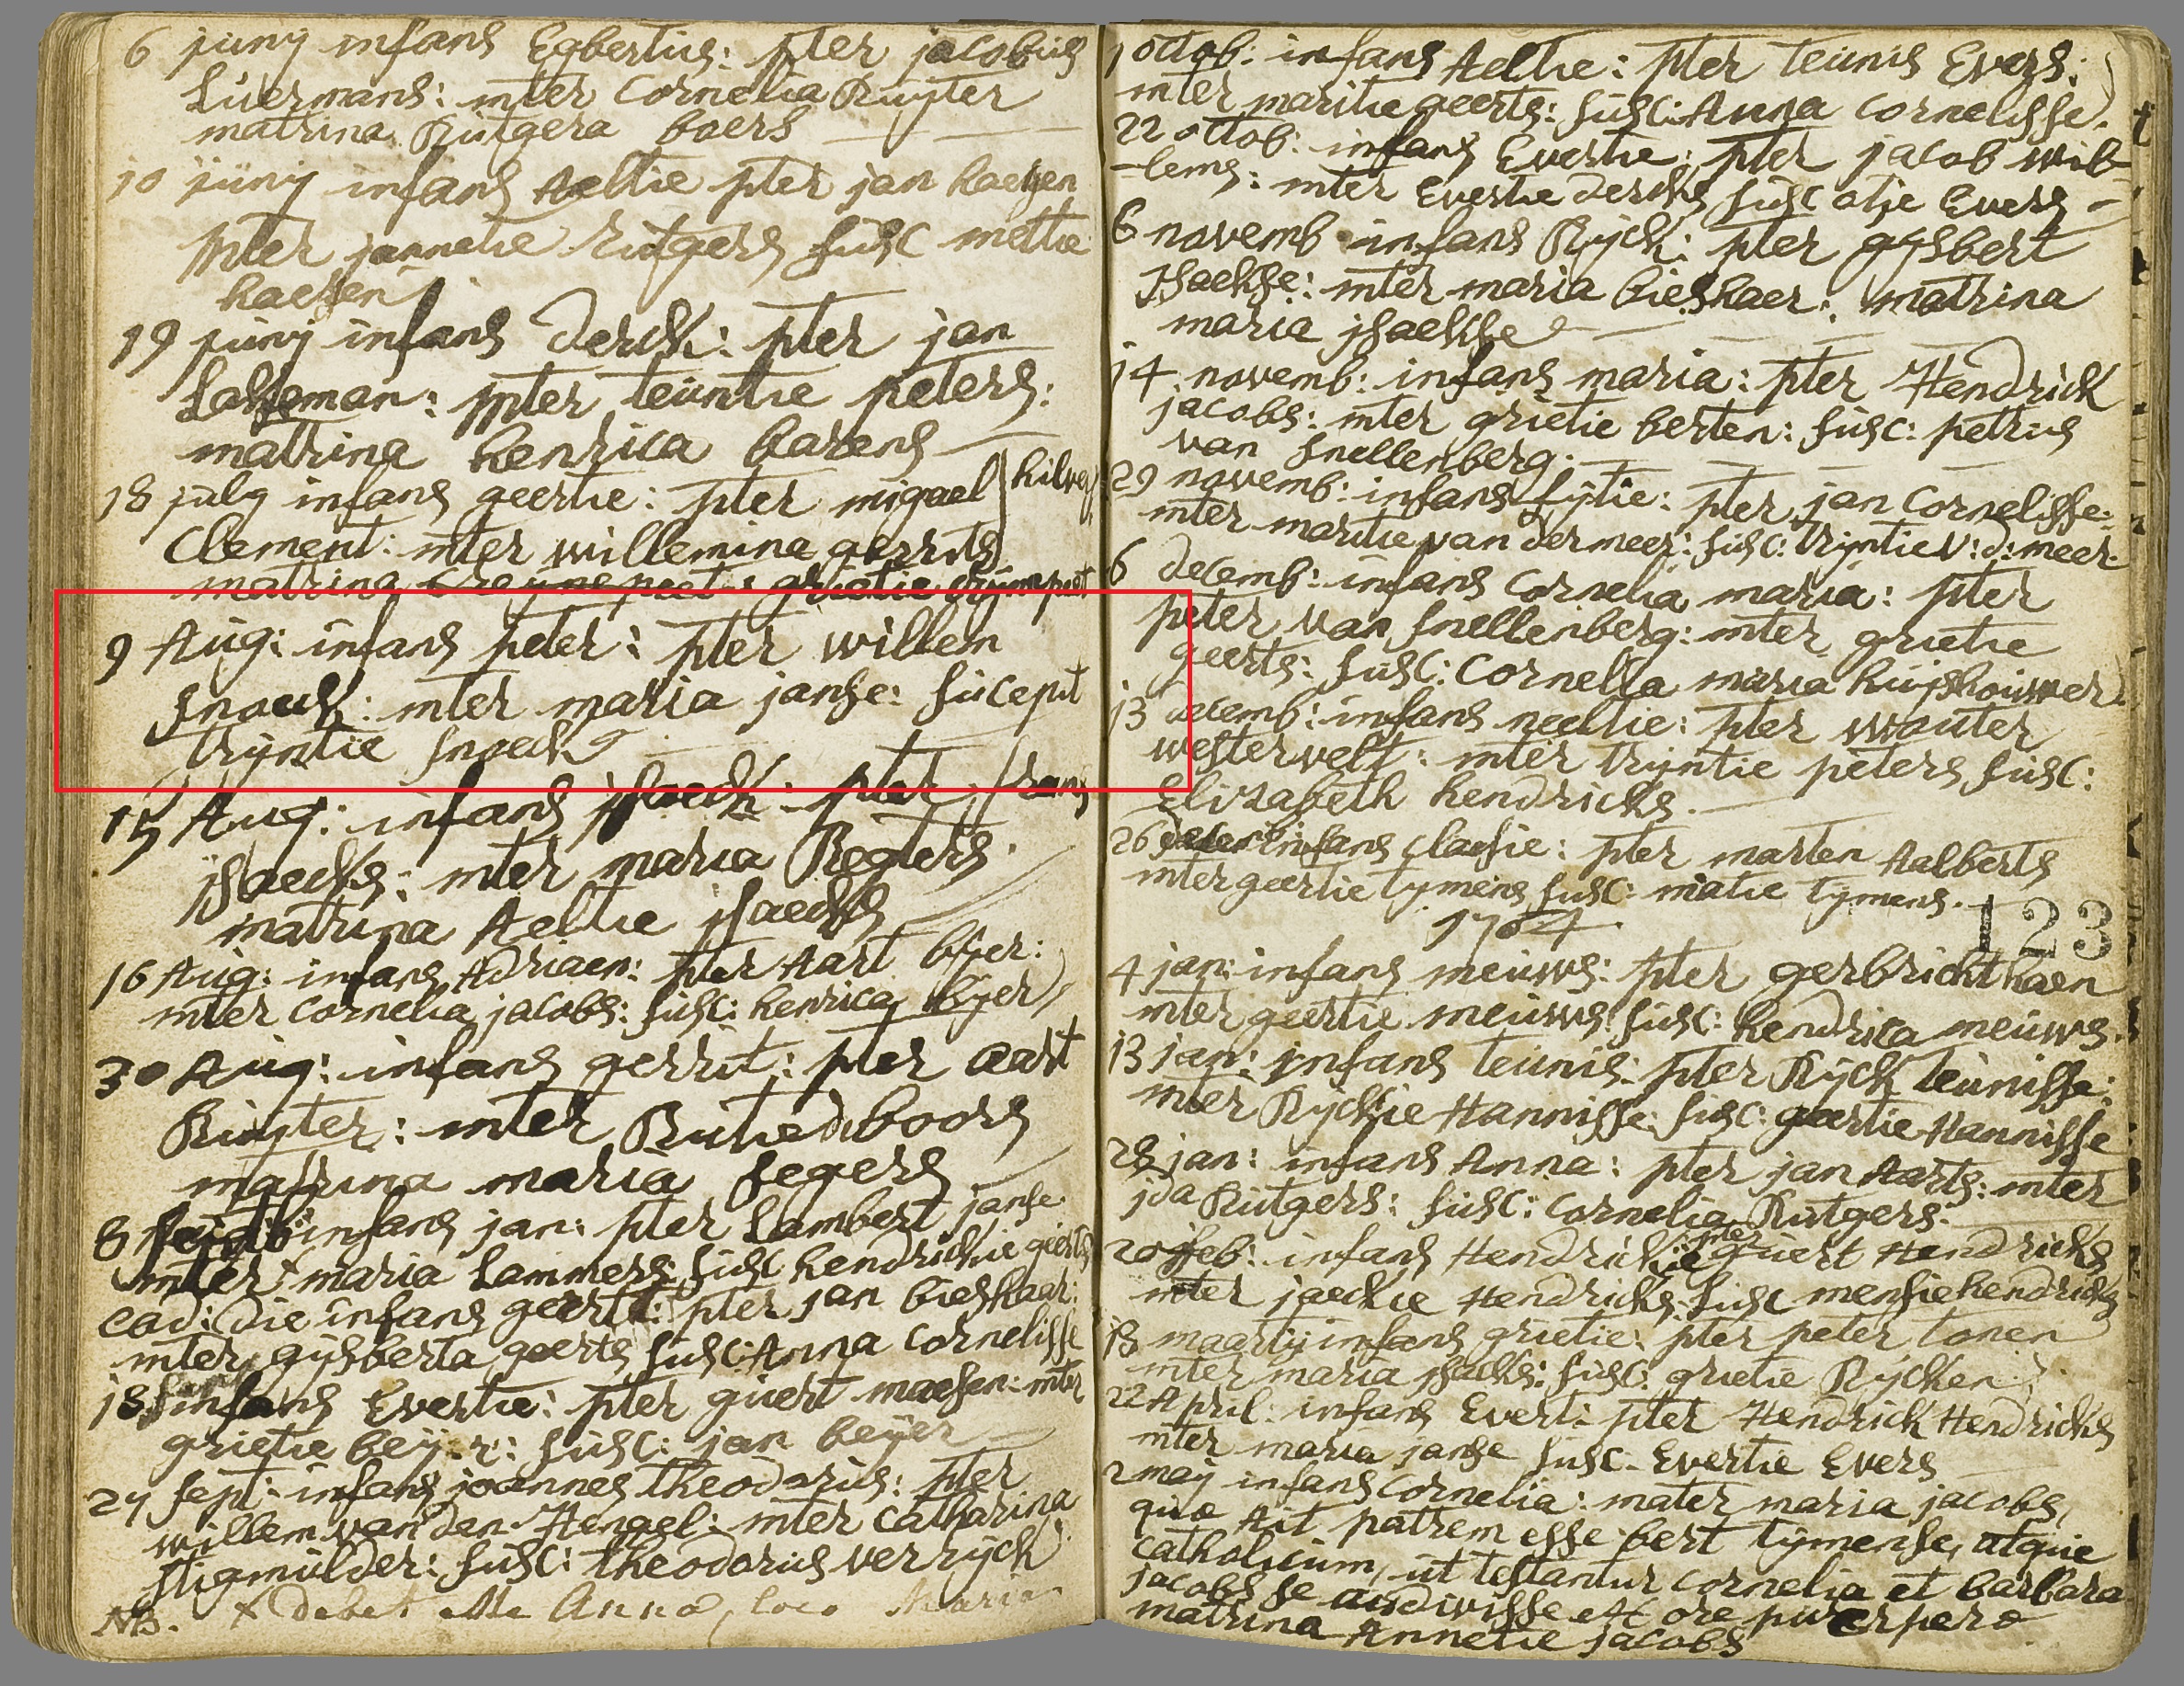 6 juny infans Egbertus: pter jacobus
Luermans: mter Cornelia Ruyter
matrina Rutgera boers
10 juny infans Aeltie pter jan haesen
mter jannetie Rutgers susc mettie
haesen
19 juny infans Derck: pter jan
Lasseman: mter teuntie peters:
matrina henrica barens
18 july infans geertie: pter migael hilver
Clement: mter willemina gerrits
matrina grietie
9 Aug: infans peter: pter willem
snoeck: mter maria janse: sucepit
tryntie snoeck
15 Aug: infans jsaeck: pter frans
jsaecks: mter maria Regters
matrina Aeltie jsaecks
16 Aug: infans Adriaen: pter Aart byer:
mter Cornelia jacobs: susc: henrica byer
30 Aug: infans gerrit: pter aart
Ruyter: mter boors
matrina maria segers
8 infans jan: pter Lambert janse
mter x maria Lammers susc hendrickie geerts
ead: die infans geertt: pter jan bieshaar:
mter gysberta geerts susc: Anna Cornelisse
18 infans Evertie: pter guert maesen: mter
grietie beyer: susc: jan beyer
27 sept: infans joannes theodorus: pter
willem van den Hengel: mter Catharina
stigmulder: susc: theodorus verryck
NB. x debet esse Anna, loco Maria
1 octob: infans Aeltie: pter teunis Evers:
mter maritie geerts: susc: Anna cornelisse.
22 octob: infans Evertie: pter jacob wil-
-lems: mter Evertie dercks susc atje Evers
6 novemb infans Ryck: pter gysbert
jsackse: mter maria bieshaer: matrina
maria jsackse
14 novemb: infans maria: pter Hendrick
jacobs: mter grietie berten: susc: petrus
van snellenberg.
29 novemb: infans fytie: pter jan Cornelisse:
mter maritie van der meer: susc: tryntie v: d: meer.
6 decemb: infans Cornelia maria: pter
peter van snellenberg: mter grietie
geerts: susc: Cornelia maria huyshouwer
13 decemb: infans neeltie: pter wouter
westervelt: mter tryntie peters susc:
Elizabeth hendricks.
26 infans claesie: pter marten Aalberts
mter geertie tymens susc: matie tymens.
1704
123
4 jan: infans meuws: pter gerbricht haen
mter geertie meuws: susc: hendrica meuws.
13 jan: jnfans teunis: pter Ryck teunisse:
mter Ryckie Hannisse: susc: geertie Hannisse
28 jan: infans Anna: pter jan Aarts: mter
jda Rutgers: susc: Cornelia Rutgers.
20 feb: infans Hendrickie pter guert Hendricks
mter jaeckie Hendricks: susc mensie hendricks
13 maartij infans grietie: pter peter tonen
mter maria jsacks: susc: grietie Rycken
22 April: infans Evert: pter Hendrick Hendricks
mter maria janse susc. Evertie Evers
2 maij infans Cornelia: mater maria jacobs,
quae Ait patrem esse bert tymense, atque
catholicum, ut testantur Cornelia et barbara
jacobs se audivisse ex ore puerpera
matrina Annetie jacobs